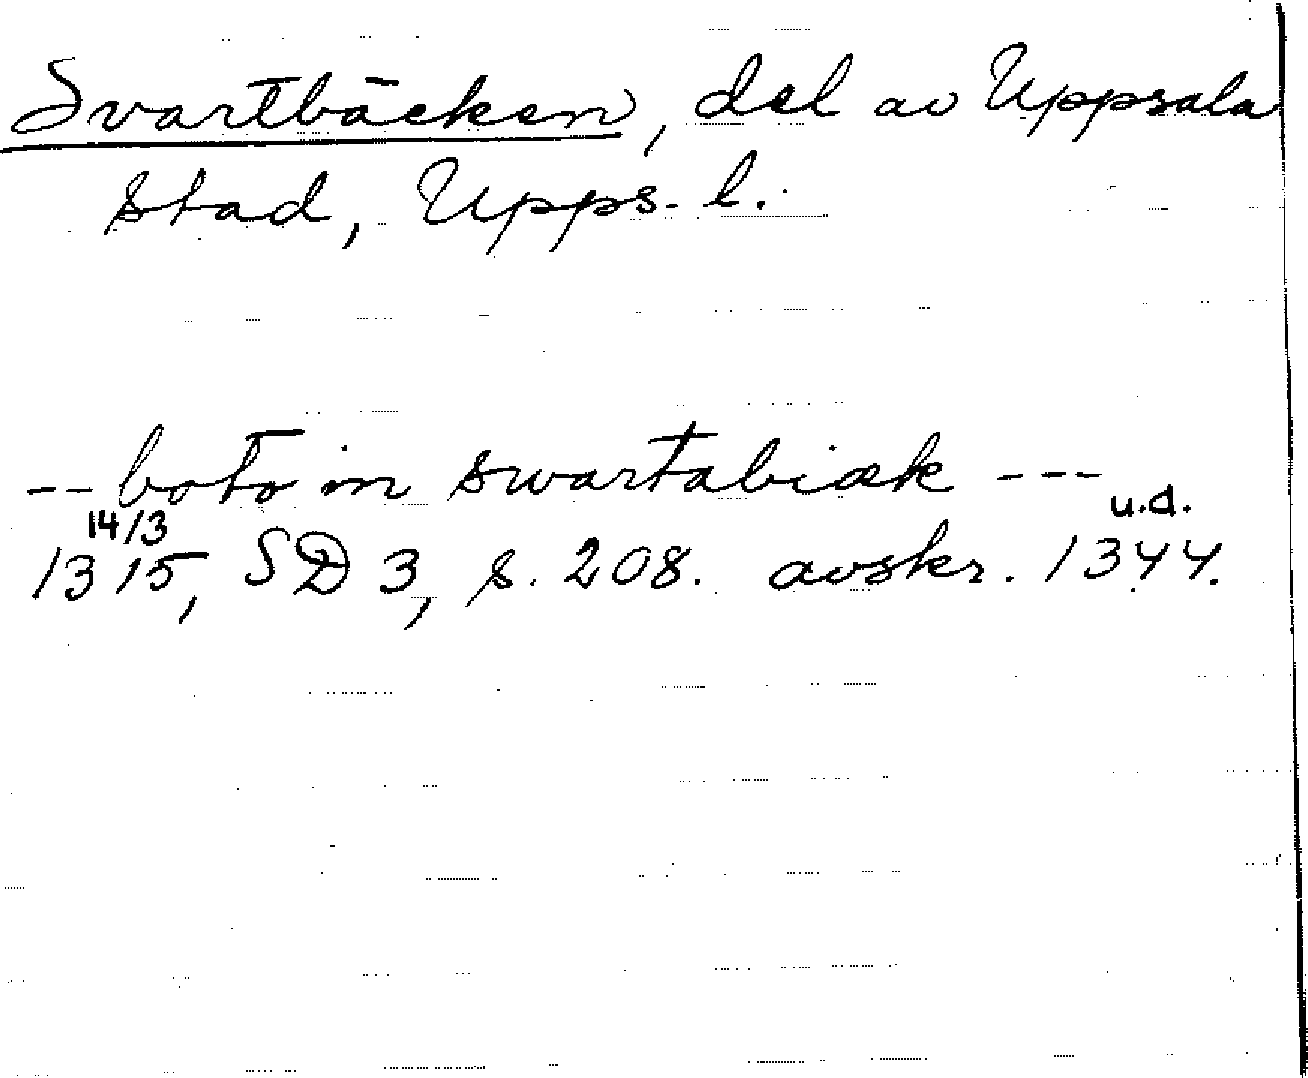 Svartbäcken, del av Uppsala
stad, Upps. l.
-- boto in swartabiæk ---
14/3 u.d.
1315, SD 3, s. 208. avskr. 1344.